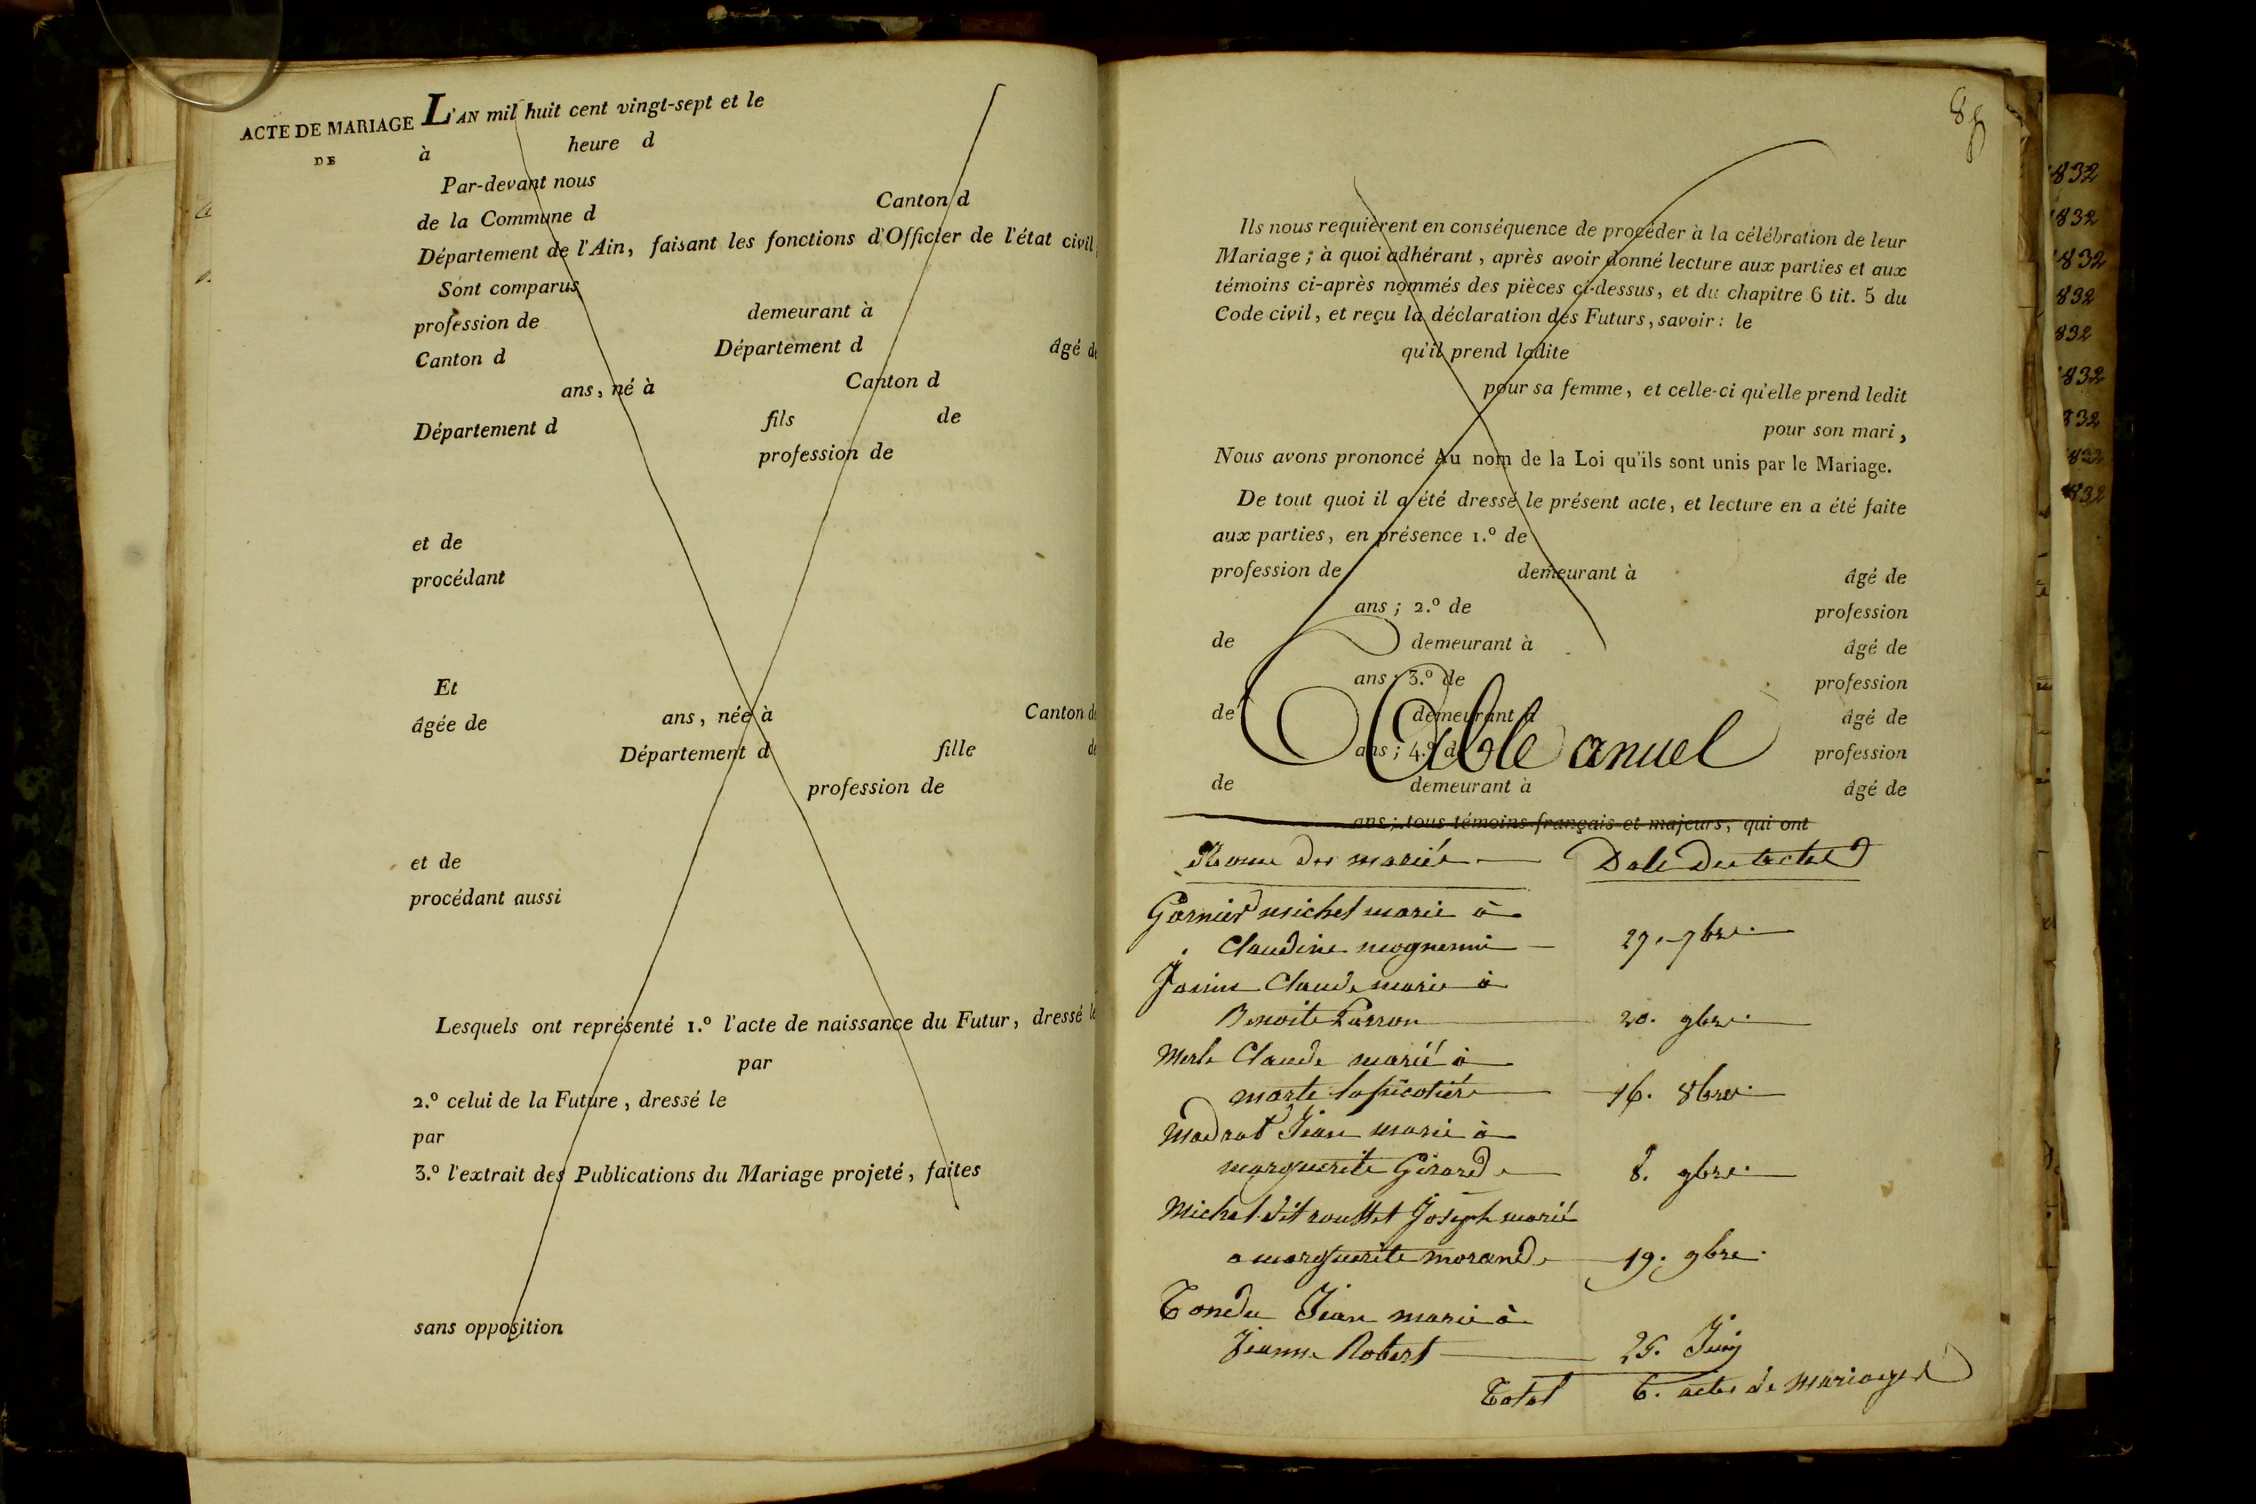 ACTE DE MARIAGE
DE
L'AN mil huit cent vingt-sept et le
à heure d
Par-devant nous
de la Commune d Canton d
Département de l'Ain, faisant les fonctions d'Officier de l'état civil
Sont comparus
profession de demeurant à
Canton d Département d âgé de
ans, né à Canton d
Département d fils de
profession de
et de
procédant
Et
âgée de ans, née à Canton de
Département d fille de
profession de
et de
procédant aussi
Lesquels ont représenté 1.º l'acte de naissance du Futur, dressé le
par
2.º celui de la Future, dressé le
par
3.º l'extrait des Publications du Mariage projeté, faites
sans opposition
Ils nous requièrent en conséquence de procéder à la célébration de leur
Mariage; à quoi adhérant, après avoir donné lecture aux parties et aux
témoins ci-après nommés des pièces ci-dessus, et du chapitre 6 tit. 5 du
Code civil, et reçu la déclaration des Futurs, savoir: le
qu'il prend ladite
pour sa femme, et celle-ci qu'elle prend ledit
pour son mari,
Nous avons prononcé Au nom de la Loi qu'ils sont unis par le Mariage.
De tout quoi il a été dressé le présent acte, et lecture en a été faite
aux parties, en présence 1.º de
profession de demeurant à âgé de
ans; 2.º de profession
de demeurant à âgé de
ans; 3.º de profession
de demeurant à âgé de
Table anuel
ans; 4.º de profession
de demeurant à âgé de
ans; tous témoins français et majeurs, qui ont
Noms des mariés Date des actes
Garnier michel marié à
Claudine 27. 7bre.
Janin Claude marié à
Benoite 20. 9bre.
Merle Claude marié à
marte 16. 8bre.
Madrat Jean marié à
marguerite Girard 8. 9bre.
Michel dit roustet Joseph marié
a marguerite morand 19. 9bre.
Tondu Jean marié à
Jeanne Robert 25. Juin
Total 6. actes de mariages
1832
1832
1832
832
832
1832
832
832
832